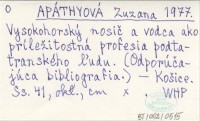 O APÁTHYOVÁ Zuzana 1977.
Vysokohorský nosič a vodca ako
príležitostná profesia podta-
tranského ľudu. (Odporúča-
júca bibliografia.) – Košice.
Ss. 41, obr., cm x . WHP